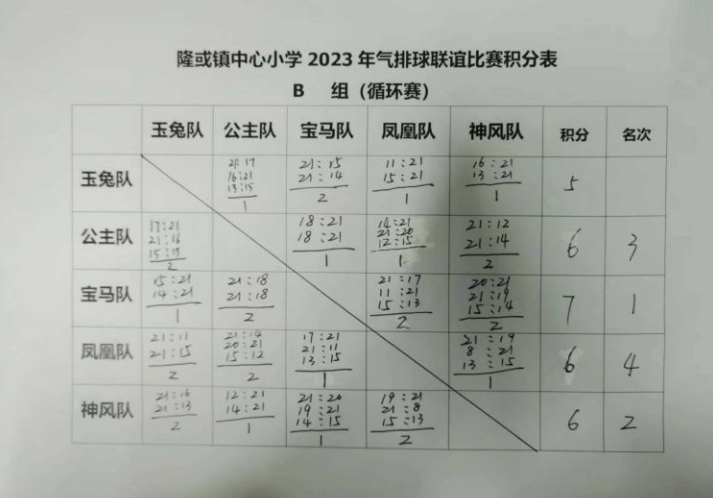 隆或镇中心小学 2023 年气排球联谊比赛积分表
B 组（循环赛）
玉兔队 公主队 宝马队 凤凰队 神风队 积分 名次
玉兔队
21:17 21:15 11:21 16:21
16:21 21:14 15:21 13:21
13:15
1 2 1 1 5
公主队
17:21 18:21 14:21 21:12
21:16 18:21 21:20 21:14
15:13 12:15
2 1 1 2 6 3
宝马队
15:21 21:18 21:17 20:21
14:21 21:18 11:21 21:19
15:13 15:14
1 2 2 2 7 1
凤凰队
21:11 21:14 17:21 21:19
21:15 20:21 21:11 8:21
15:12 13:15 13:15
2 2 1 1 6 4
神风队
21:16 12:21 21:20 19:21
21:13 14:21 19:21 21:8
14:15 15:13
2 1 1 2 6 2